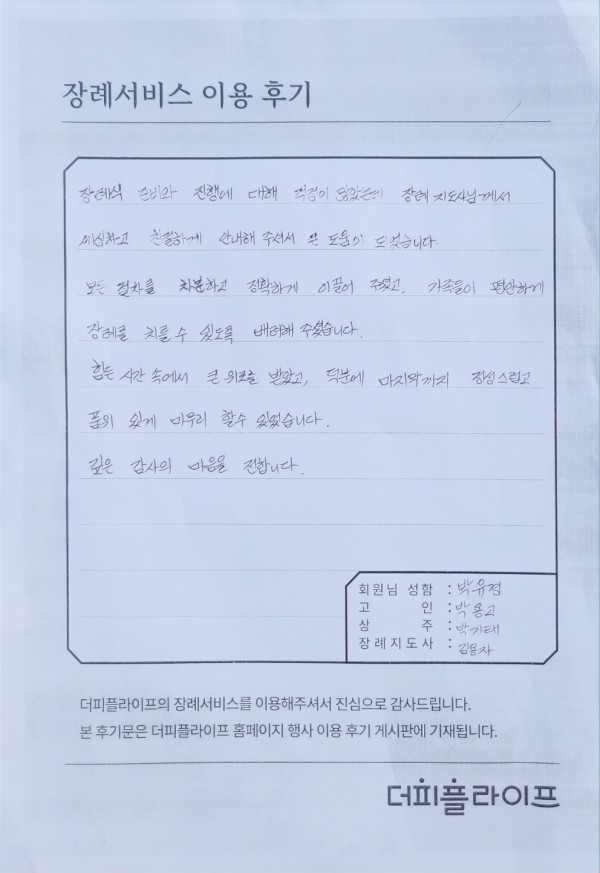 장례서비스 이용 후기
장례식 준비와 진행에 대해 걱정이 많았는데 장례 지도사님께서
세심하고 친절하게 안내해 주셔서 큰 도움이 되었습니다.
모든 절차를 차분하고 정확하게 이끌어 주셨고, 가족들이 편안하게
장례를 치를 수 있도록 배려해 주셨습니다.
힘든 시간 속에서 큰 위로를 받았고, 덕분에 마지막까지 정성스럽고
품위 있게 마무리 할수 있었습니다.
깊은 감사의 마음을 전합니다.
회원님 성함 : 박유정
고 인 : 박용고
상 주 : 박기태
장례지도사 : 김용자
더피플라이프의 장례서비스를 이용해주셔서 진심으로 감사드립니다.
본 후기문은 더피플라이프 홈페이지 행사 이용 후기 게시판에 기재됩니다.
더피플라이프